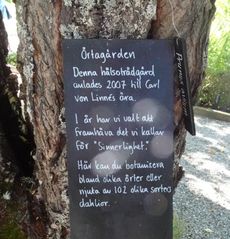 Örtagården
Denna hälsoträdgård
anlades 2007 till Carl
von Linnés ära.
I år har vi valt att
framhäva det vi kallar
för "Sinnerlighet".
Här kan du botanisera
bland olika örter eller
njuta av 102 olika sorters
dahlior.